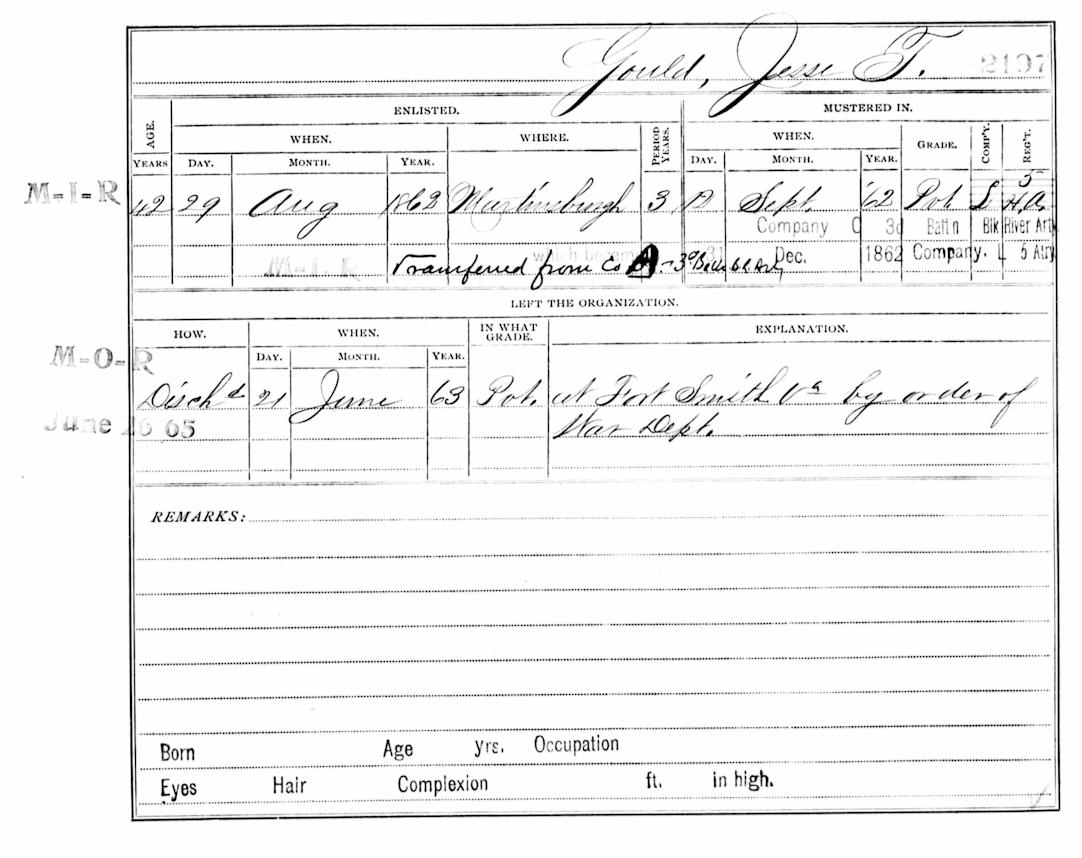 Gould, Jesse T. 2197
ENLISTED. MUSTERED IN.
AGE. WHEN. WHERE. PERIOD YEARS. WHEN. GRADE. COMP'Y. REG'T.
YEARS DAY. MONTH. YEAR. DAY. MONTH. YEAR.
M-I-R 42 29 Aug 1862 Martinsburgh 3 12 Sept. '62 Pvt L 5 H.A.
Company C 3d Batt'n Blk River Arty
M-I-R which became 31 Dec. 1862 Company. L 5 Atry
Transferred from Co A - 3d
LEFT THE ORGANIZATION.
HOW. WHEN. IN WHAT GRADE. EXPLANATION.
DAY. MONTH. YEAR.
M-O-R
Disch d 21 June 63 Pvt. at Fort Smith Va by order of
June 26 65 War Dept.
REMARKS:
Born Age yrs. Occupation
Eyes Hair Complexion ft. in high.